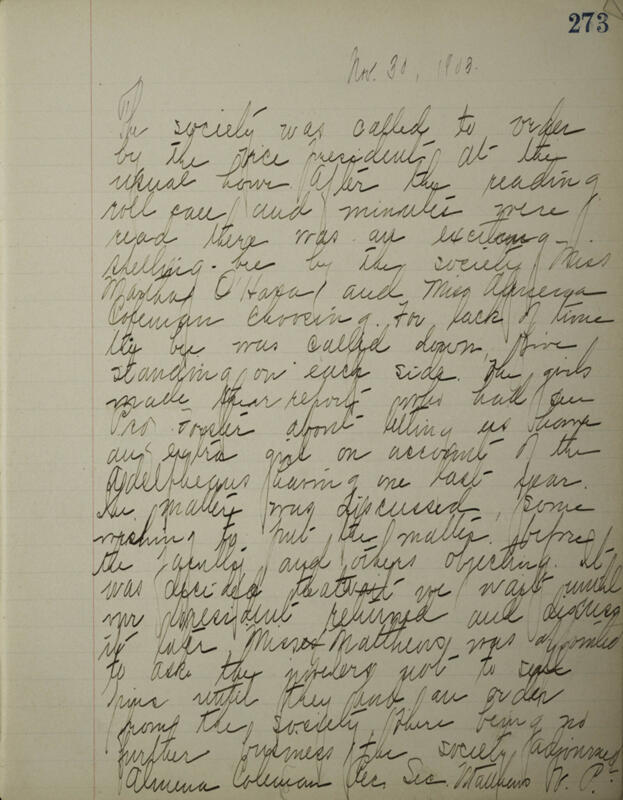 273
Nov. 30, 1903.
The society was called to order
by the vice president at the
usual hour. After the reading
roll call and minutes were
read there was an exciting
spelling-bee by the society Miss
Martha O'Hara and Miss Almena
Coleman choosing. For lack of time
the bee was called down, five
standing on each side. The girls
made their report who had seen
Pro. Foster about letting us have
an extra girl on account of the
Adelpheans having one last year.
The matter was discussed, some
wishing to put the matter before
the faculty and others objecting. It
was decided that we wait until
our president returned and discuss
it later. Miss Matthews was appointed
to ask the jewelers not to sell
pins until they had an order
from the society. There being no
further business the society adjourned
Almena Coleman Rec. Sec. Matthews V. P.